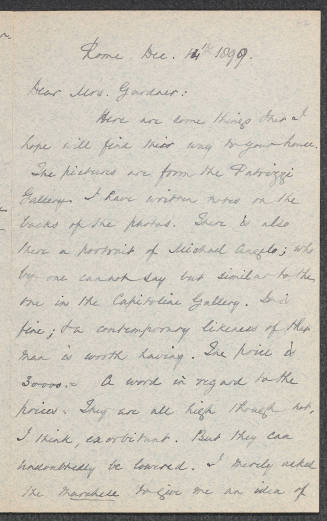 Rome Dec. 14th 1899.
Dear Mrs. Gardner:
Here are some things that I
hope will find their way to your house.
The pictures are form the Patrizzi
Gallery. I have written notes on the
backs of the photos. There is also
there a portrait of Michael Angelo; who
by one cannot say but similar to the
one in the Capitoline Gallery. It is
fine; & a contemporary likeness of that
man is worth having. The price is
30000.= A word in regard to the
prices. They are all high though not,
I think, exorbitant. But they can
undoubtedly be lowered. I merely asked
the Marchese to give me an idea of